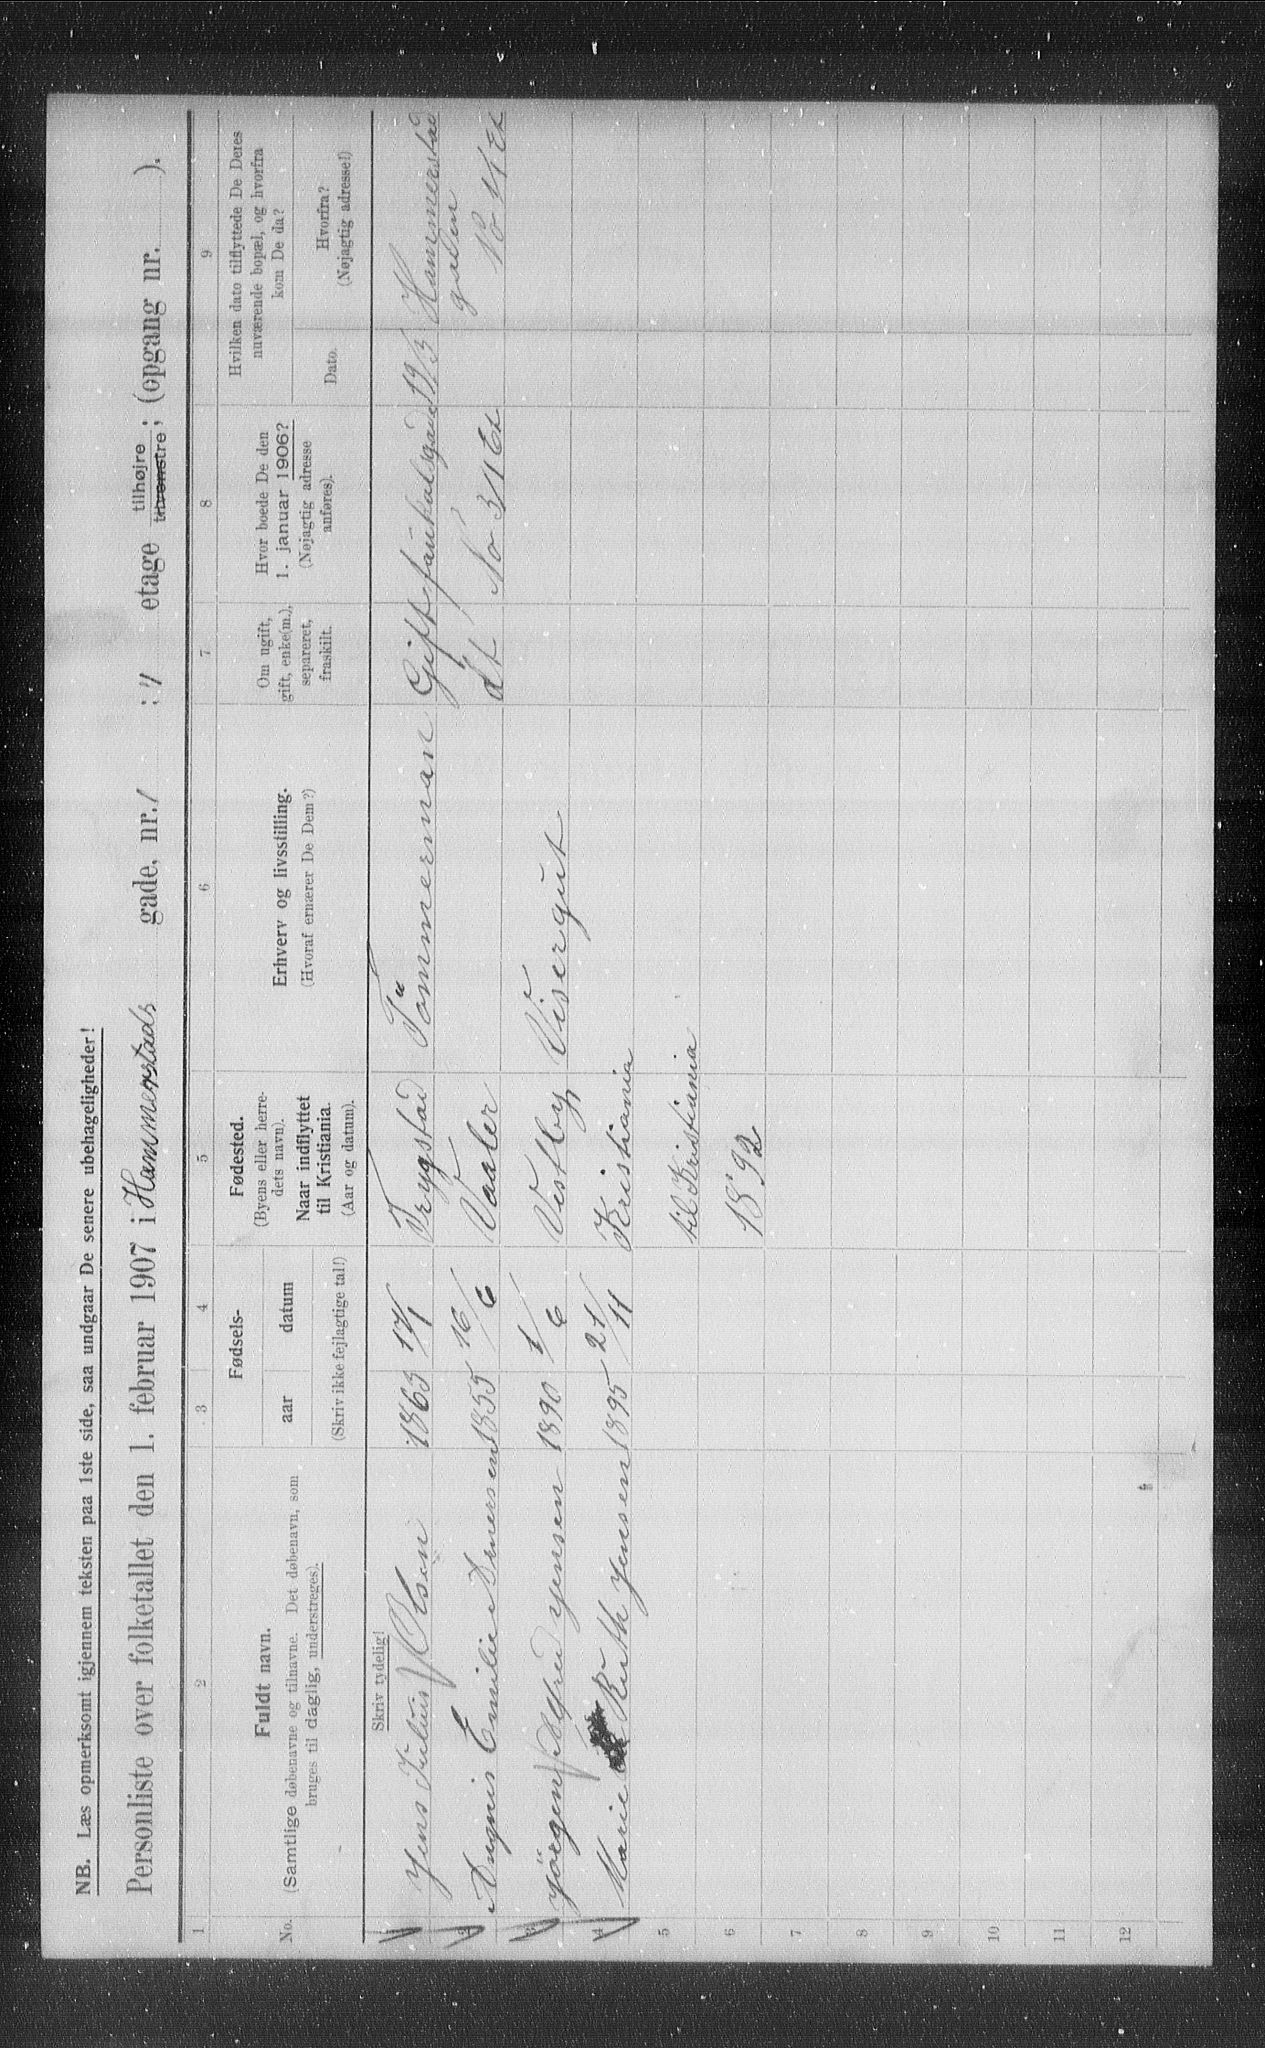 NB. Læs opmerksomt igjennem teksten paa 1ste side, saa undgaar De senere ubehageligheder!
Personliste over folketallet den 1. februar 1907 i Hammerstads gade, nr. 1 ; etage tilhøjre tilvenstre; (opgang nr. ).
1 2 3 4 5 6 7 8 9
No.
Fuldt navn.
(Samtlige døbenavne og tilnavne. Det døbenavn, som
bruges til daglig, understreges).
Fødsels-
aar datum
(Skriv ikke fejlagtige tal!)
Fødested.
(Byens eller herre-
dets navn).
Naar indflyttet
til Kristiania.
(Aar og datum).
Erhverv og livsstilling.
(Hvoraf ernærer De Dem?)
Om ugift,
gift, enke(m.),
separeret,
fraskilt.
Hvor boede De den
1. januar 1906?
(Nøjagtig adresse
anføres).
Hvilken dato tilflyttede De Deres
nuværende bopæl, og hvorfra
kom De da?
Dato.
Hvorfra?
(Nøjagtig adresse!)
Skriv tydelig!
1 Jens Julius Olsen 1865 17/1 Trygstad Tömmerman Gift 19/3 Hammerstad
gaden
2 Emilie 1855 16/6 Vaaler dt No 3 II Et No II Et
3 Jörgen Alfred Jensen 1890 1/6 Vestby Visergut
4 Marie Ruth Jensen 1895 21/11 Kristiania
5 til Kristiania
6 1892
7
8
9
10
11
12